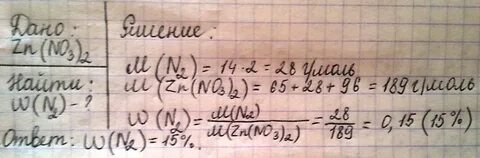 Дано:
Zn(NO₃)₂
Найти:
W(N₂)-?
Решение:
M(N₂) = 14·2 = 28 г/моль
M(Zn(NO₃)₂) = 65 + 28 + 96 = 189 г/моль
W(N₂) = M(N₂)/M(Zn(NO₃)₂) = 28/189 = 0,15 (15%)
Ответ: W(N₂) = 15%.